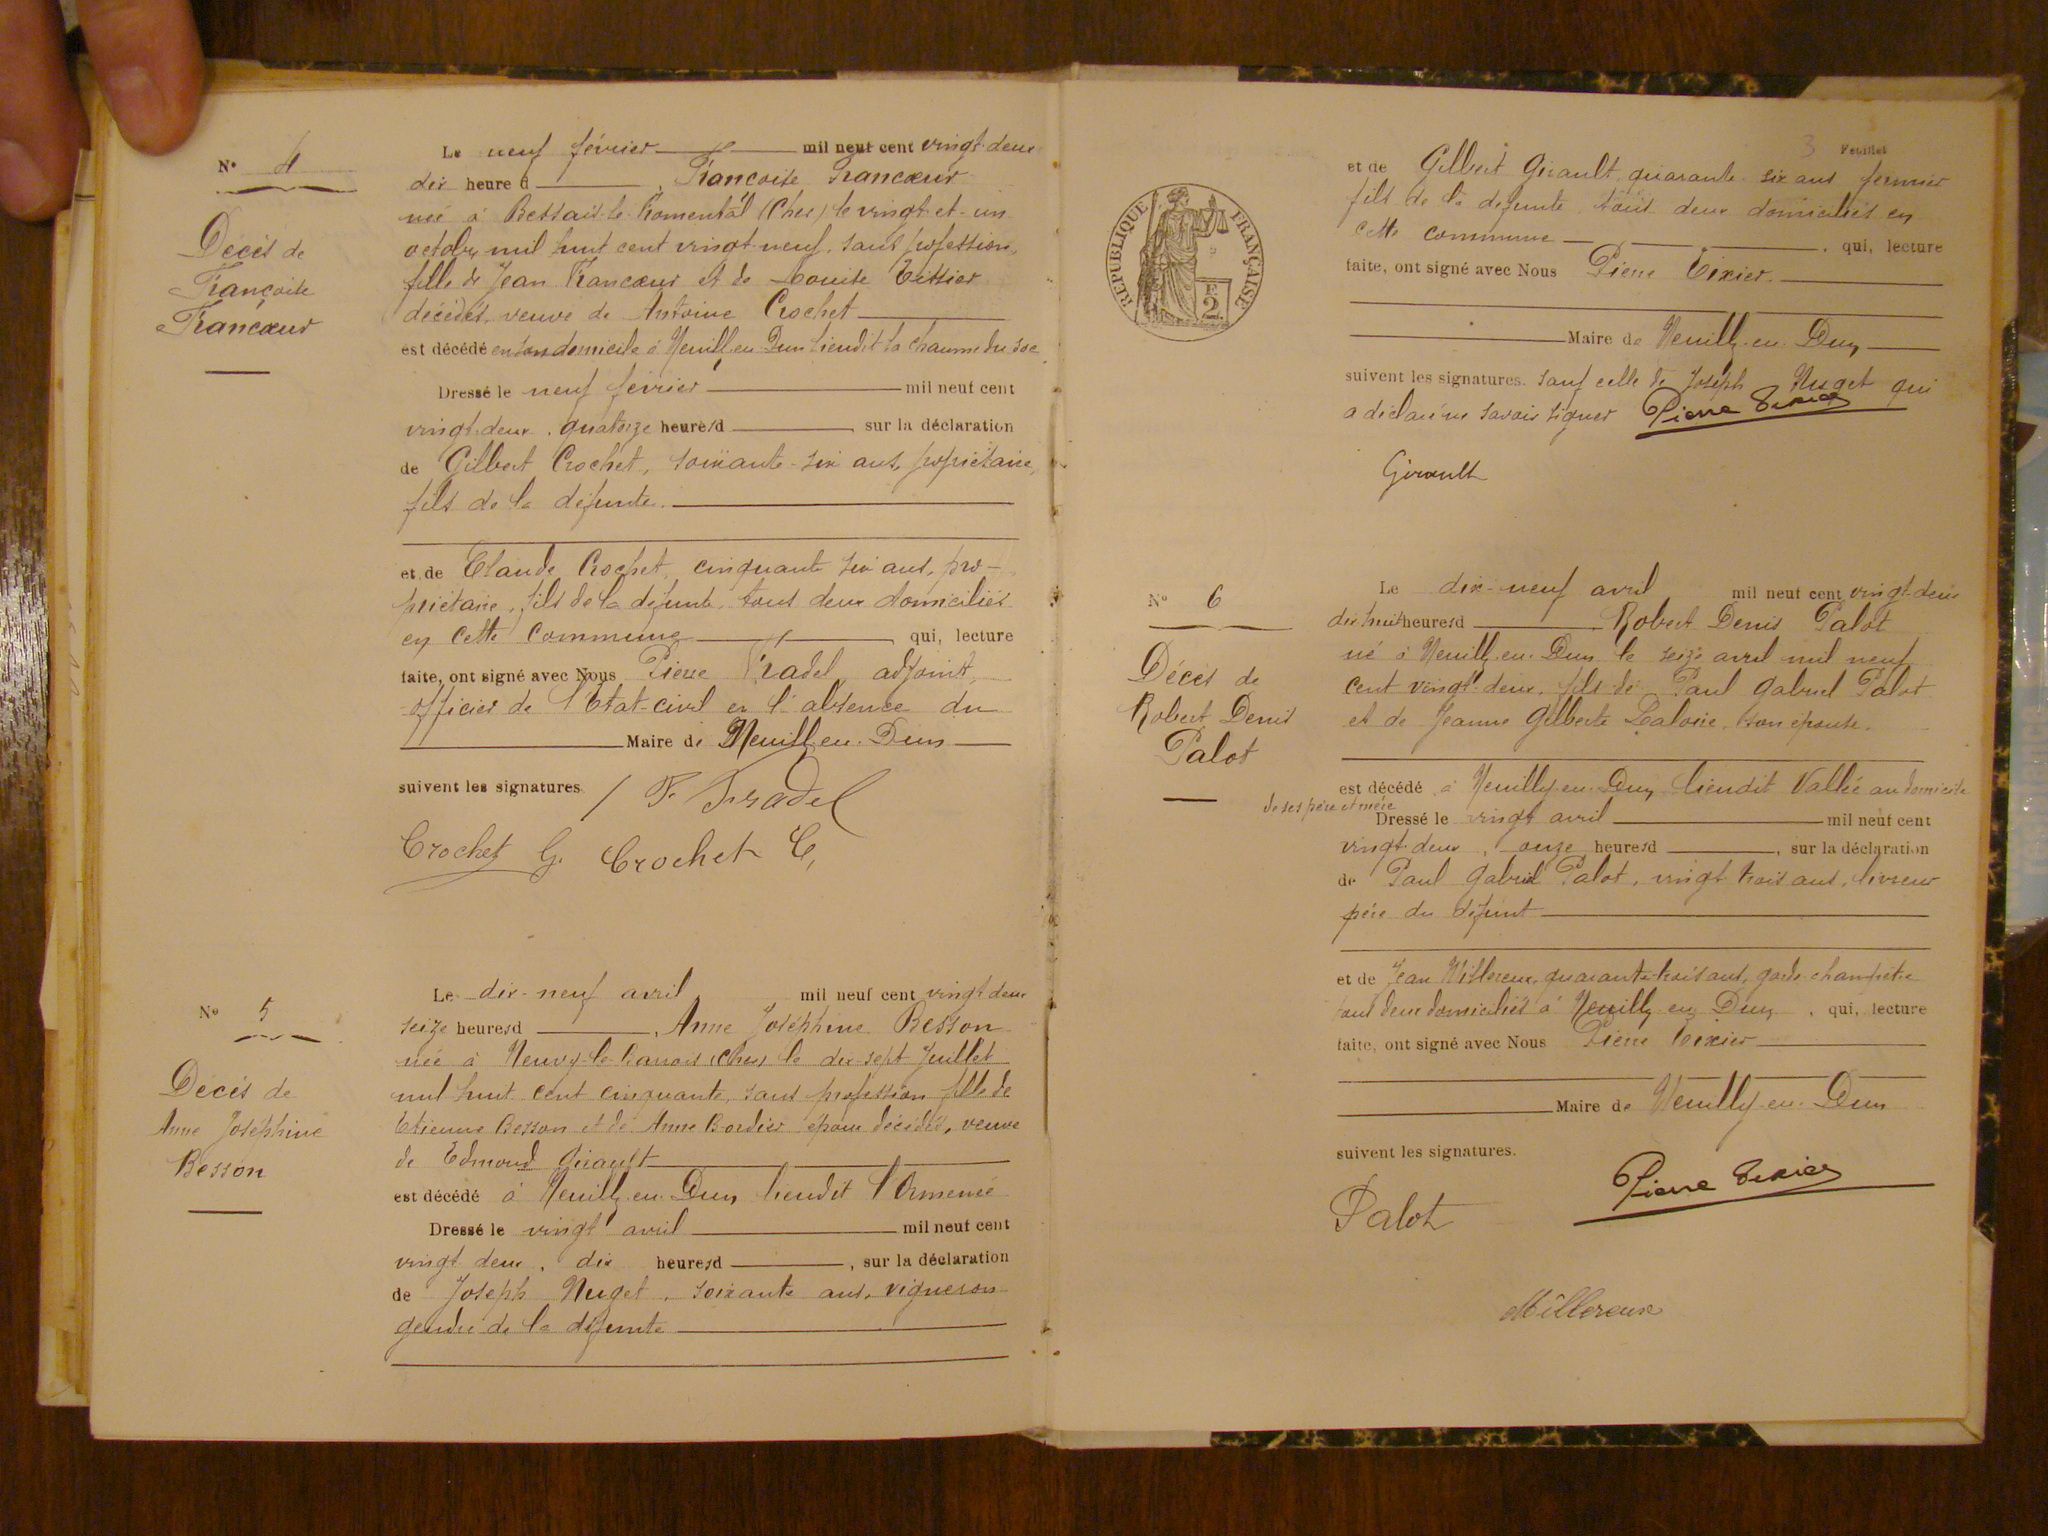 N° 4
Décès de
Françoise
Francœur
Le neuf février mil neuf cent vingt-deux
dix heure d , Françoise Francœur
née à Bessais-le-Fromental (Cher) le vingt-et-un
octobre mil huit cent vingt-neuf, sans profession,
fille de Jean Francœur et de Louise Tissier
décédés, veuve de Antoine Crochet
est décédé en son domicile à Neuilly-en-Dun lieudit la Chaume du
Dressé le neuf février mil neuf cent
vingt-deux, quatorze heures d sur la déclaration
de Gilbert Crochet, soixante-six ans, propriétaire,
fils de la défunte.
et de Claude Crochet, cinquante six ans, pro-
priétaire, fils de la défunte, tous deux domiciliés
en cette commune qui, lecture
faite, ont signé avec Nous Pierre Fradel, adjoint,
officier de l'Etat-civil en l'absence du
Maire de Neuilly-en-Dun
suivent les signatures Fradel
Crochet G. Crochet C,
N° 5
Décès de
Anne Joséphine
Besson
Le dix-neuf avril mil neuf cent vingt-deux
seize heures d , Anne Joséphine Besson
née à Neuvy-le-Barrois (Cher) le dix-sept Juillet
mil huit cent cinquante, sans profession fille de
Etienne Besson et de Anne Bordier époux décédés, veuve
de Edmond Girault
est décédé à Neuilly-en-Dun lieudit l'Ormenée
Dressé le vingt avril mil neuf cent
vingt deux, dix heures d , sur la déclaration
de Joseph Nuget, soixante ans, vigneron
gendre de la défunte
3 Feuillet
RÉPUBLIQUE FRANÇAISE
2
et de Gilbert Girault, quarante-six ans fermier
fils de la défunte, tous deux domiciliés en
cette commune , qui, lecture
faite, ont signé avec Nous Pierre Tixier.
Maire de Neuilly-en-Dun
suivent les signatures. sauf celle de Joseph Nuget qui
a déclaré ne savoir signer Pierre Tixier
Girault
N° 6
Décès de
Robert Denis
Palot
Le dix-neuf avril mil neuf cent vingt-deux
dix huit heures d , Robert Denis Palot
né à Neuilly-en-Dun le seize avril mil neuf
cent vingt-deux, fils de Paul Gabriel Palot
et de Jeanne Gilberte Laloire, son épouse.
est décédé à Neuilly-en-Dun lieudit Vallée au domicile
de ses père et mère
Dressé le vingt avril mil neuf cent
vingt-deux, onze heures d , sur la déclaration
de Paul Gabriel Palot, vingt trois ans, livreur
père du défunt
et de Jean Millereux, quarante-trois ans, garde-champêtre
tous deux domiciliés à Neuilly en Dun, qui, lecture
faite, ont signé avec Nous Pierre Tixier
Maire de Neuilly-en-Dun
suivent les signatures.
Pierre Tixier
Palot
Millereux